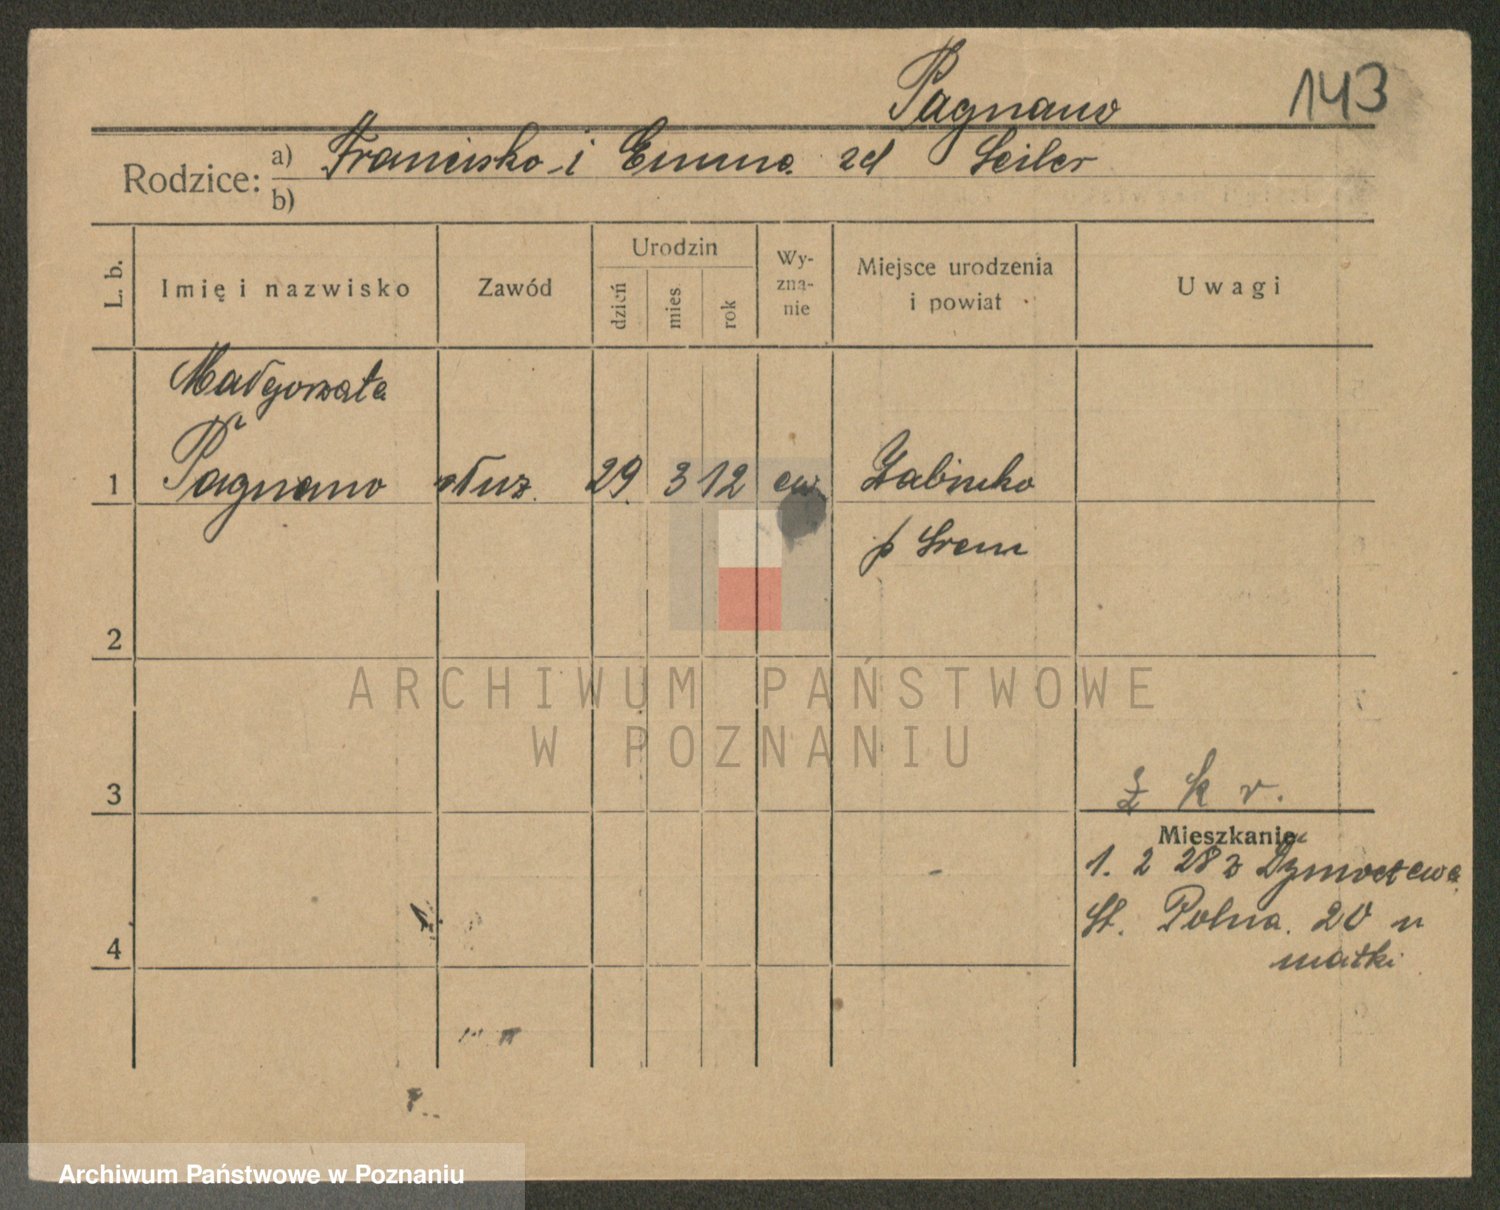 Pagnano
143
Rodzice: a) Francisko i Emma zd Seiler
b)
L. b.
Imię i nazwisko
Zawód
Urodzin
dzień
mies
rok
Wy-
zna-
nie
Miejsce urodzenia
i powiat
Uwagi
Małgorzata
1 Pagnano służ. 29 3 12 ew Żabinko
p Śrem
2
ARCHIWUM PAŃSTWOWE
W POZNANIU
3
k r.
Mieszkanie
1. 2 28 z
St. Polna 20 u
matki
4
Archiwum Państwowe w Poznaniu